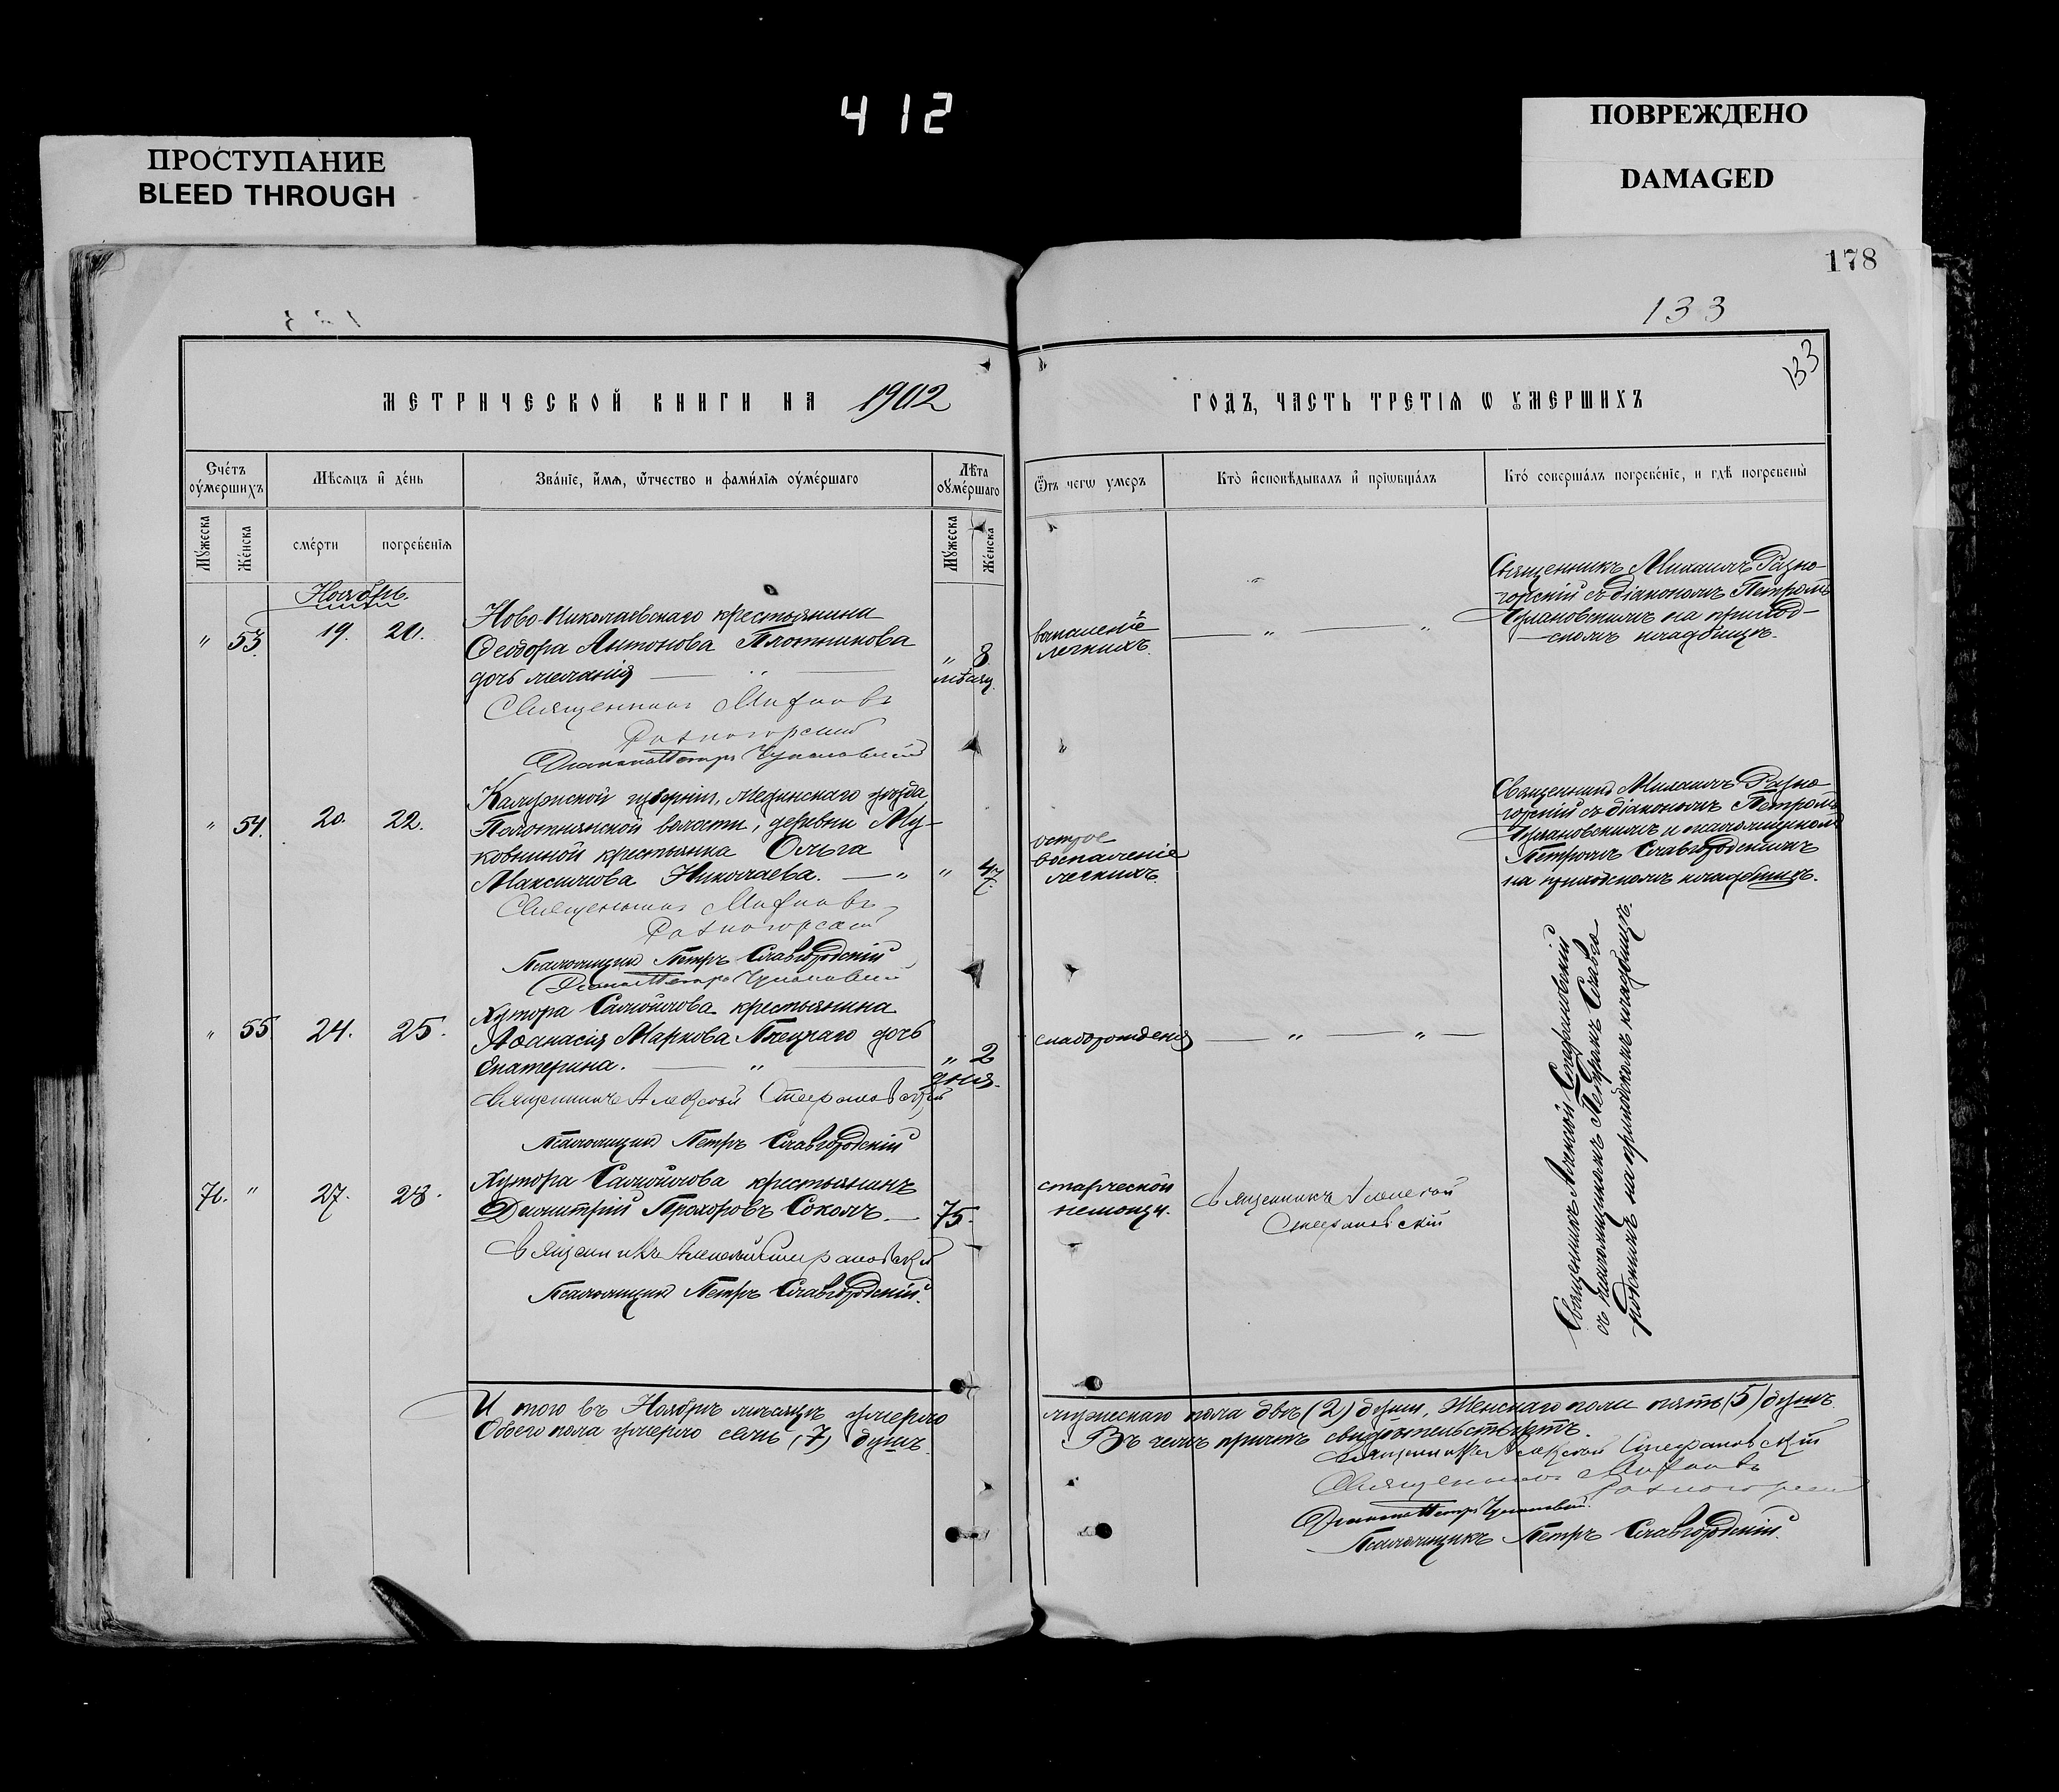 412
ПРОСТУПАНИЕ
BLEED THROUGH
ПОВРЕЖДЕНО
DAMAGED
178
133
133
МЕТРИЧЕСКОЙ КНИГИ НА 1902
ГОДЪ, ЧАСТЬ ТРЕТІѦ Ѡ ОУМЕРШИХЪ
Счетъ оумершихъ
Мѣсяцъ и день
Званіе, имя, ѿчество и фамилія оумершаго
Лѣта оумершаго
Мужеска
Женска
смерти
погребенія
Мужеска
Женска
Ѿ чегѡ умеръ
Кто исповѣдывалъ и пріѡбщалъ
Кто совершалъ погребеніе, и гдѣ погребены
Ноябрь.
" 53. 19. 20.
Ново-Николаевскаго крестьянина
Ѳеодора Антонова Плотникова
дочь Мелания — " —
" 8
мѣсяц.
воспаленіе
легкихъ.
— " — "
Священникъ Михаилъ Разно-
горскій съ діакономъ Петромъ
на приход-
скомъ кладбищѣ.
Священникъ Михаилъ
Разногорский
Диаконъ Петръ
" 54. 20. 22.
Калужской губерніи, Мединскаго уѣзда,
Полотнянской волости, деревни Му-
ковниной крестьянка Ольга
Максимова Николаева. — "
" 47.
острое
воспаленіе
легкихъ.
Священникъ Михаилъ Разно-
горскій съ діакономъ Петромъ
и псаломщикомъ
Петромъ Славгородскимъ
на приходскомъ кладбищѣ.
Священникъ Михаилъ
Разногорский
Псаломщикъ Петръ Славгородскій
Диаконъ Петръ
" 55. 24. 25.
Хутора Самойлова крестьянина
Аѳанасія Маркова дочь
Екатерина. — " —
" 2
дня.
слаборожденія
— " — " —
Священникъ Алексѣй Стефановскій
Псаломщикъ Петръ Славгородскій
76. " 27. 28.
Хутора Самойлова крестьянинъ
Димитрій Прохоровъ Соколъ. —
75.
старческой
немощи.
Священникъ Алексѣй
Стефановскій
Священникъ Алексѣй Стефановскій
Псаломщикъ Петръ Славгородскій.
Священникъ Алексѣй Стефановскій
съ псаломщикомъ Петромъ Славго-
родскимъ на приходскомъ кладбищѣ.
И того въ Ноябрѣ мѣсяцѣ умерло
мужескаго пола двѣ (2) души, Женскаго пола пять (5) душъ.
Обоего пола умерло семь (7) душъ.
Въ чемъ причтъ свидѣтельствуетъ.
Священникъ Алексѣй Стефановскій
Священникъ Михаилъ
Разногорский
Диаконъ Петръ
Псаломщикъ Петръ Славгородскій.